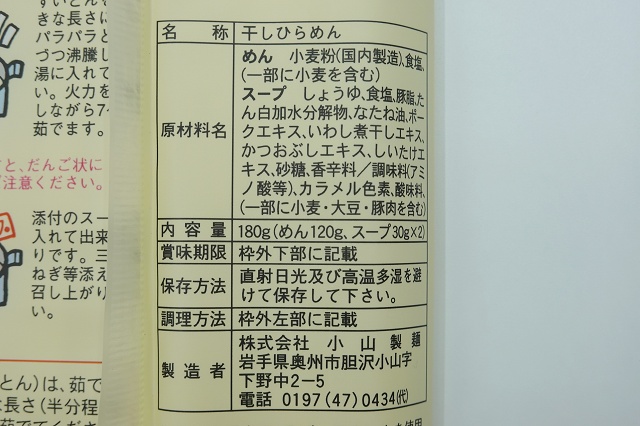 きな長さに
パラパラと
づつ沸騰し
湯に入れて
い。火力を
しながら7~
茹でます。
と、だんご状に
ご注意ください。
添付のスー
入れて出来
りです。三
ねぎ等添え
召し上がり
い。
とん)は、茹で
な長さ(半分程
名 称 干しひらめん
原材料名
めん 小麦粉(国内製造)、食塩、
(一部に小麦を含む)
スープ しょうゆ、食塩、豚脂、た
ん白加水分解物、なたね油、ポー
クエキス、いわし煮干しエキス、
かつおぶしエキス、しいたけエ
キス、砂糖、香辛料/調味料(アミ
ノ酸等)、カラメル色素、酸味料、
(一部に小麦・大豆・豚肉を含む)
内 容 量 180g(めん120g、スープ30g×2)
賞味期限 枠外下部に記載
保存方法 直射日光及び高温多湿を避
けて保存して下さい。
調理方法 枠外左部に記載
製 造 者
株式会社 小山製麺
岩手県奥州市胆沢小山字
下野中2-5
電話 0197(47)0434(代)